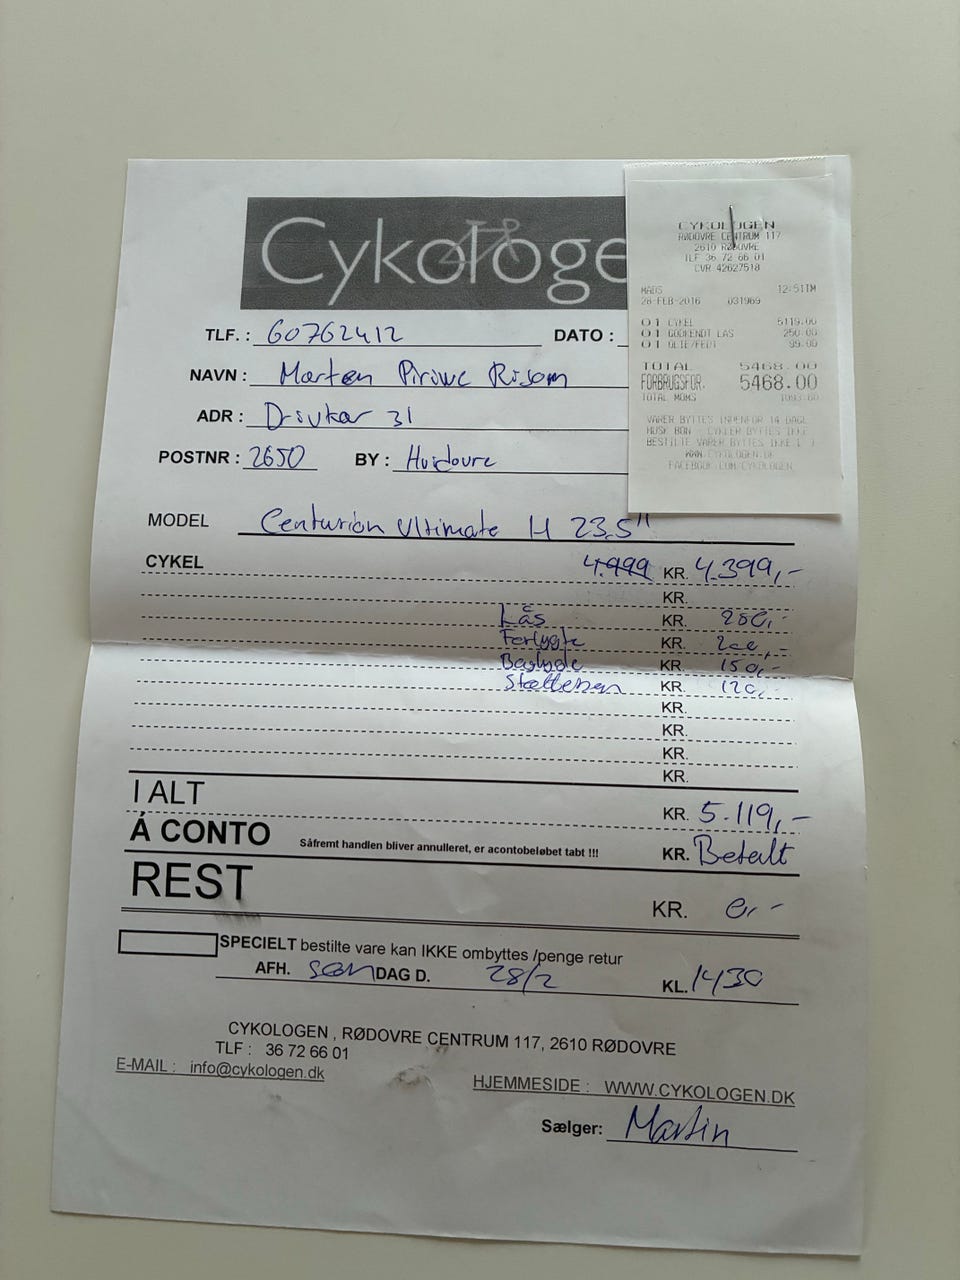 Cykologe
TLF. : 60762412 DATO :
NAVN : Morten Risom
ADR : 31
POSTNR : 2650 BY : Hvidovre
CYKOLOGEN
RØDOVRE CENTRUM 117
2610 RØDOVRE
TLF 36 72 66 01
CVR 42627518
MADS 12:51TM
28-FEB-2016 031969
01 CYKEL 5119.00
01 GODKENDT LÅS 250.00
01 OLIE/FEDT 99.00
TOTAL 5468.00
FORBRUGSFOR. 5468.00
TOTAL MOMS
VARER BYTTES INDENFOR 14 DAGE
HUSK BON - CYKLER BYTTES IKKE
BESTILTE VARER BYTTES IKKE
WWW.CYKOLOGEN.DK
FACEBOOK.COM/CYKOLOGEN
MODEL Centurion Ultimate H 23,5"
CYKEL 4.999 KR. 4.399,-
KR.
Lås KR. 250,-
Forlygte KR. 200,-
Baglygte KR. 150,-
Støtteben KR. 120,-
KR.
KR.
KR.
KR.
I ALT KR. 5.119,-
Á CONTO Såfremt handlen bliver annulleret, er acontobeløbet tabt !!! KR. Betalt
REST KR. 0,-
SPECIELT bestilte vare kan IKKE ombyttes /penge retur
AFH. søn DAG D. 28/2 KL. 1430
CYKOLOGEN , RØDOVRE CENTRUM 117, 2610 RØDOVRE
TLF : 36 72 66 01
E-MAIL : info@cykologen.dk
HJEMMESIDE : WWW.CYKOLOGEN.DK
Sælger: Martin